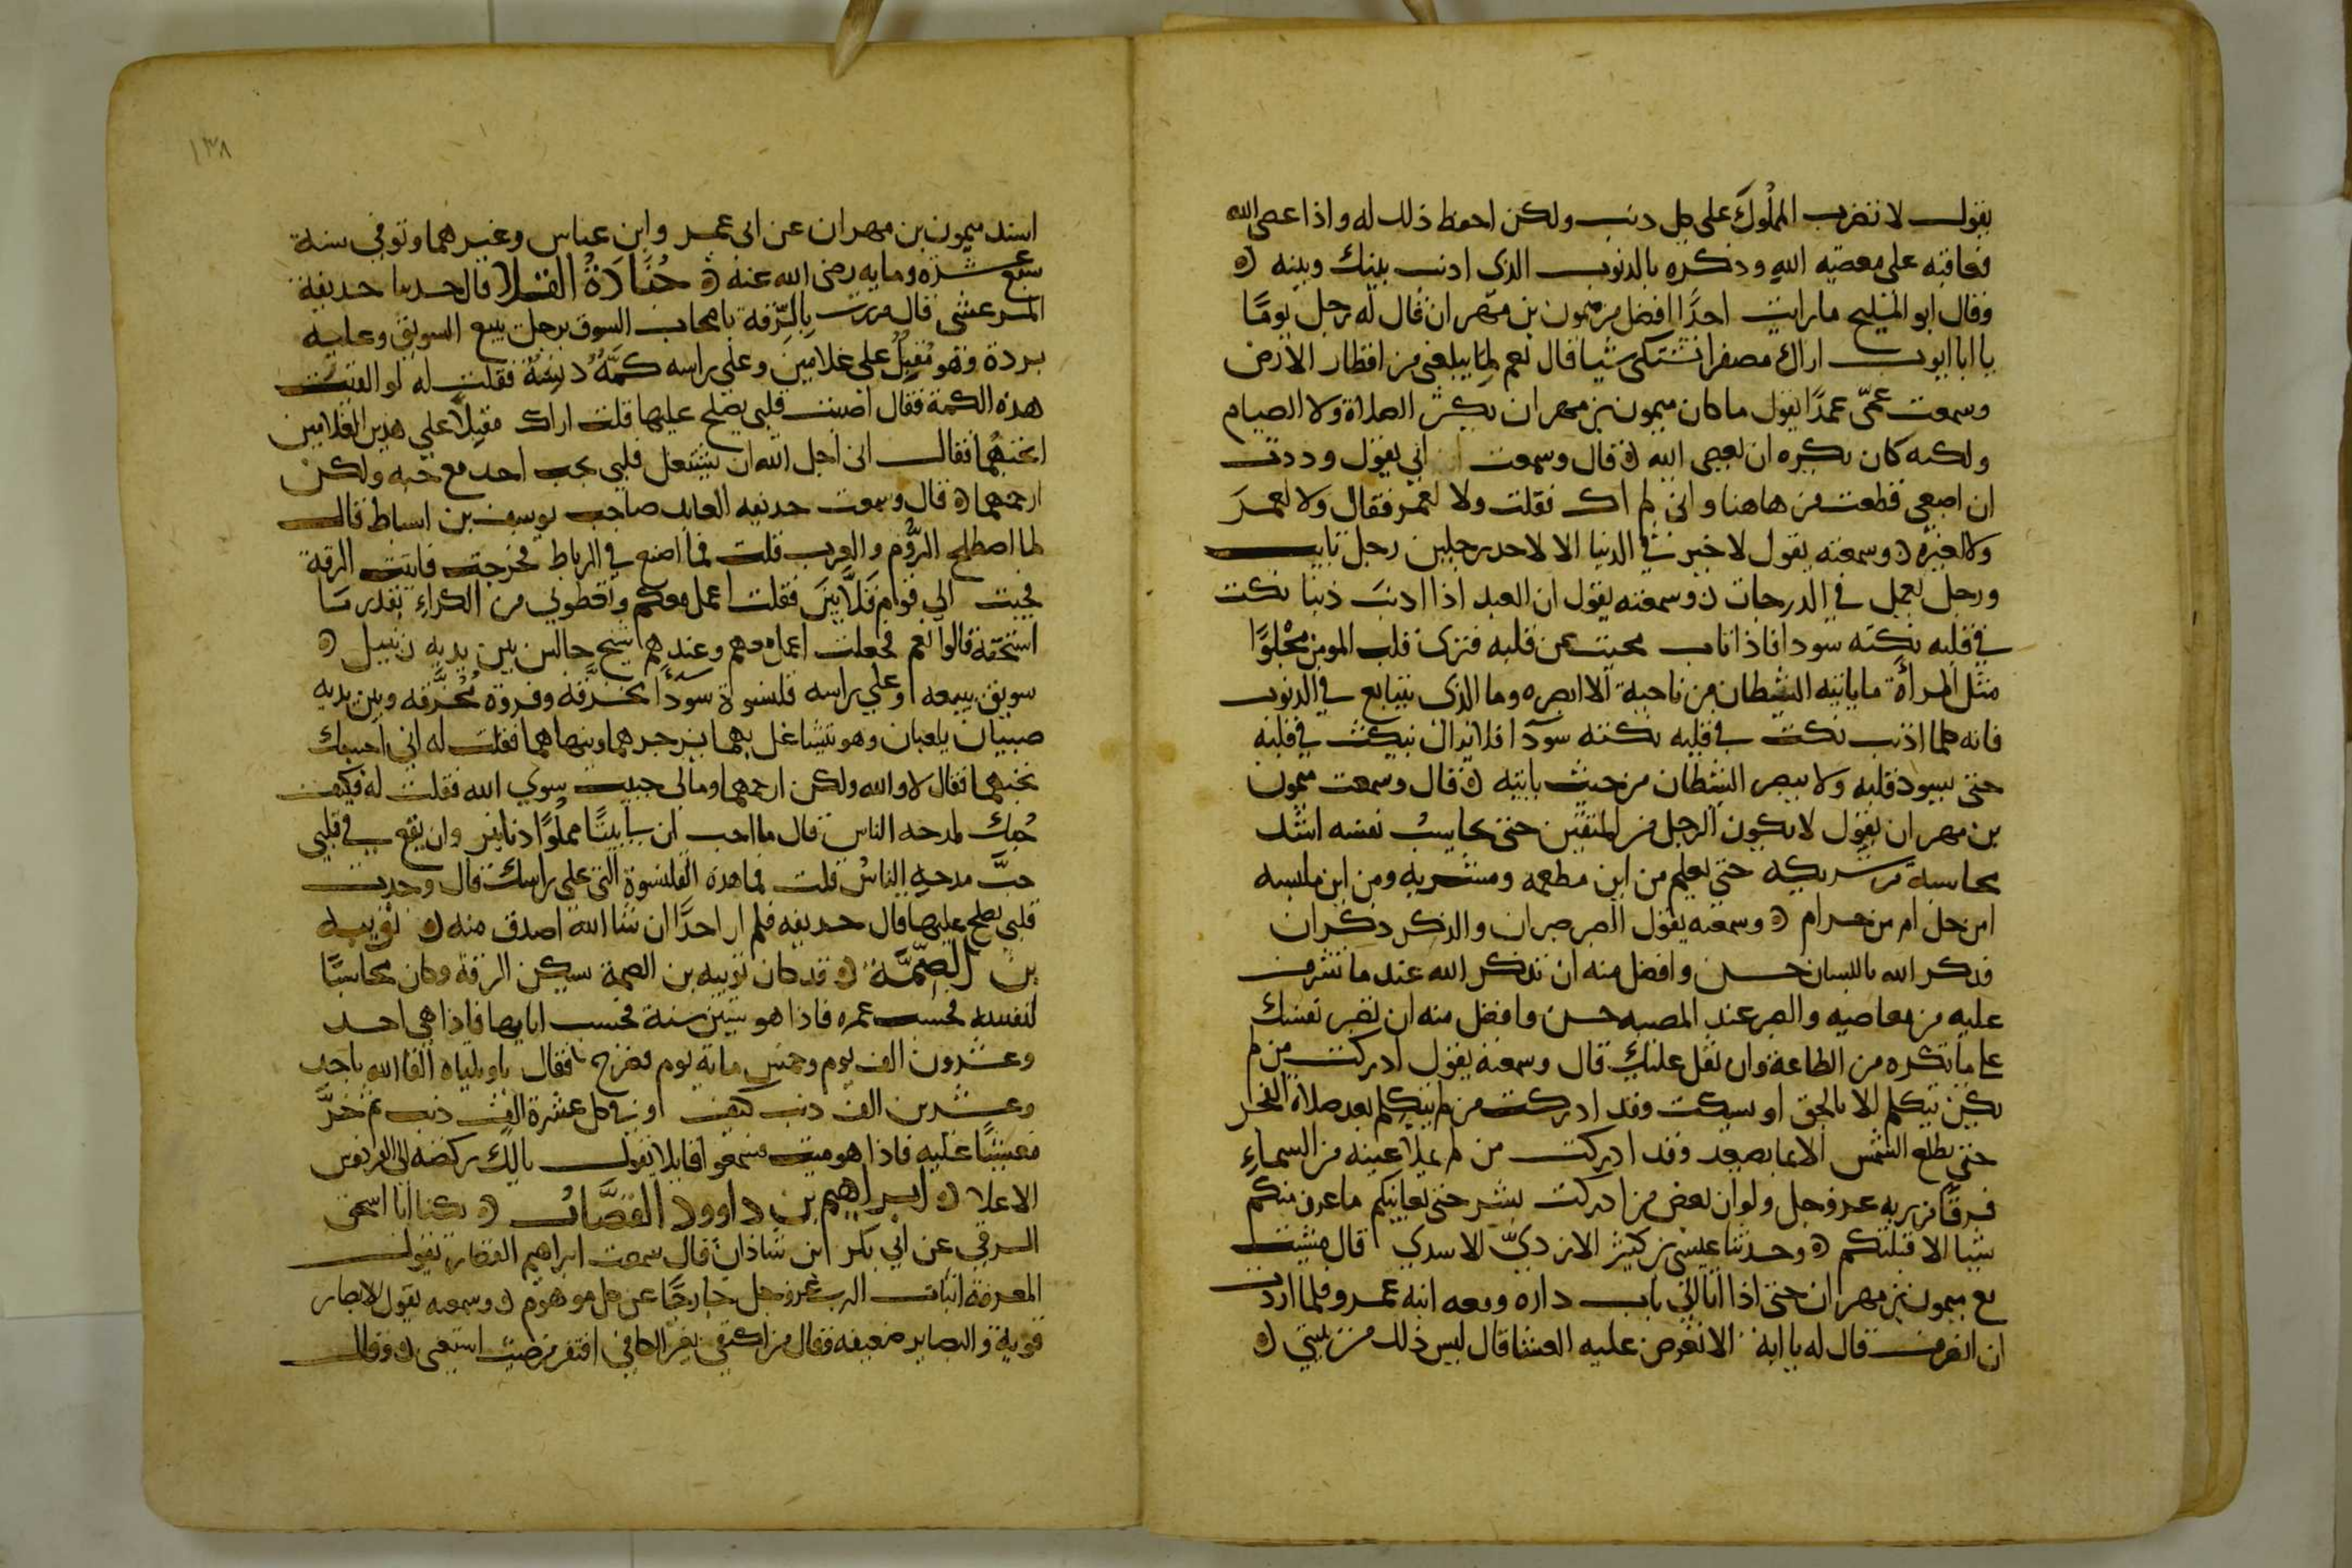 يقول لا تضرب المملوك على كل ذنب ولكن احفظ ذلك له واذا عصى الله
فعاقبه على معصية الله وذكره بالذنوب الذى اذنب بينك وبينه
وقال ابو المليح ما رايت احدًا افضل من ميمون بن مهران قال له رجل يومًا
يا ابا ايوب اراك مصفرا تشتكى شيا قال نعم لما يبلغنى من اقطار الارض
وسمعت عمّى عمدًا يقول ما كان ميمون بن مهران يكثر الصلاة ولا الصيام
ولكنه كان يكره ان يعصى الله قال وسمعت ابي يقول وددت
ان اصبعى قطعت من هاهنا وانى لم اك فقلت ولا لعمر فقال ولا لعمرَ
ولا لغيره وسمعته يقول لا خير في الدنيا الا لاحد رجلين رجل تايب
ورجل يعمل في الدرجات وسمعته يقول ان العبد اذا اذنبَ ذنبا نكت
في قلبه نكته سودا فاذا تاب محيت عن قلبه فترى قلب المومن مجْلوًا
مثل المرأة ما ياتيه الشيطان من ناحية الا ابصره وما الذى يتتابع في الذنوب
فانه كلما اذنب نكت في قلبه نكته سودآ فلا يزال ينكت في قلبه
حتى يسود قلبه ولا يبصر الشيطان من حيث ياتيه قال وسمعت ميمون
بن مهران يقول لا يكون الرجل من المتقين حتى يحاسبُ نفسه اشد
محاسبة من شريكه حتى يعلم من اين مطعمه ومشربه ومن اين ملبسه
امن حل ام من حرام وسمعته يقول الصبر صبران والذكر ذكران
فذكر الله باللسان حسن وافضل منه ان تذكر الله عند ما تشرف
عليه من معاصيه والصبر عند المصيبه حسن وافضل منه ان تصبر نفسك
على ما تكره من الطاعة وان ثقل عليك قال وسمعته يقول ادركت من لم
يكن يتكلم الا بالحق او يسكت وقد ادركت من لم يتكلم بعد صلاة الفجر
حتى تطلع الشمس الا بما يصعد وقد ادركت من لم يملا عينه من السماءِ
فرقًا من ربه عز وجل ولو ان بعض من ادركت نشر حتى يعاينكم ما عرف منكم
شيا الا قبلتكم وحدثنا عيسى بن كثير الازديّ الاسدي قال مشيت
مع ميمون بن مهران حتى اذا اتا الى باب داره ومعه ابنه عمرو فلما اردت
ان انصرف قال له يا ابه الا تعرض عليه العشا قال ليس ذلك من نيتي
١٣٨
اسند ميمون بن مهران عن ابى عمر وابن عباس وغيرهما وتوفي سنة
سبع عشره ومايه رضى الله عنه جُنَادَةُ القلا قال حدثنا حديفة
المرعشى قال مررت بِالرّقة باصحاب السوق برجل يبيع السويق وعليه
بردة وهو مُقبِلُ على غلامين وعلى راسه كمَّةُ دنِسَةُ فقلت له لو القيت
هذه الكمة فقال اصبت قلبى يصلح عليها قلت اراك مقبلًا على هذين الغلامين
اتحبهُما فقال انى اجل الله ان يشتغل قلبي بحب احد مع حبه ولكن
ارحمهما قال وسمعت حديفه العابد صاحب يوسف بن اسباط قال
لما اصطلح الرُّوْم والعرب قلت فما اصنع في الرباط فخرجت فاتيت الرقة
فجيت الى قوام قَلَّايِينَ فقلت اعمل معكم واقطونى من الكراءِ بقدر ما
استحقه قالوا نعم فجعلت اعمل معهم وعندهم شيخ جالس بين يديه زنبيل
سويق يبيعه وعلى راسه قلنسوة سودآ مخرَّقه وفروة مُخَرَّقه وبين يديه
صبيان يلعبان وهو يتشاغل بهما يزجرهما وينهاهما فقلت له انى احسبك
تحبهما فقال لا والله ولكن ارحمهما ومالى حبيب سوي الله فقلت له فكيف
حُبك لمدحه الناس قال ما احب ان لي بيتًا مملُوًا دنانير وان يقع في قلبى
حبَّ مدحةِ الناسُ قلت فما هذه القلنسوة التى على راسك قال وجدت
قلبي يصلح عليها قال حديفه فلم ار احدًا ان شا الله اصدق منه تُوْبيه
بن الصِّمَّة قد كان توبيه بن الصمة يسكن الرقة وكان محاسبًا
لنفسه فحسب عمره فاذا هو ستين سنة فحسب ايامها فاذا هى احد
وعشرون الف يوم وخمس ماية يوم فصرخ فقال ياويلتاه القا الله باحد
وعشرين الف ذنب كيف او في كل عشرة الف ذنب ثم خرَّ
مغشيًا عليه فاذا هو ميت فسمعوا قايلا يقول يالك ركضه الى الفردوس
الاعلا ابراهيم بن داوود القصَّار يكنا ابا اسحق
الرقى عن ابي بكر ابن شاذانَ قال سمعت ابراهيم القصار يقول
المعرفة اثبات الرب عز وجل خارجًا عن كل موهوم وسمعه يقول الابصار
قوية والبصاير ضعيفه فقال من اكتفى بغير الكافي افتقر من حيث استغنى وقال